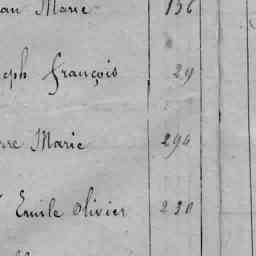 Marie 136
François 29
Marie 294
Emile Olivier 230